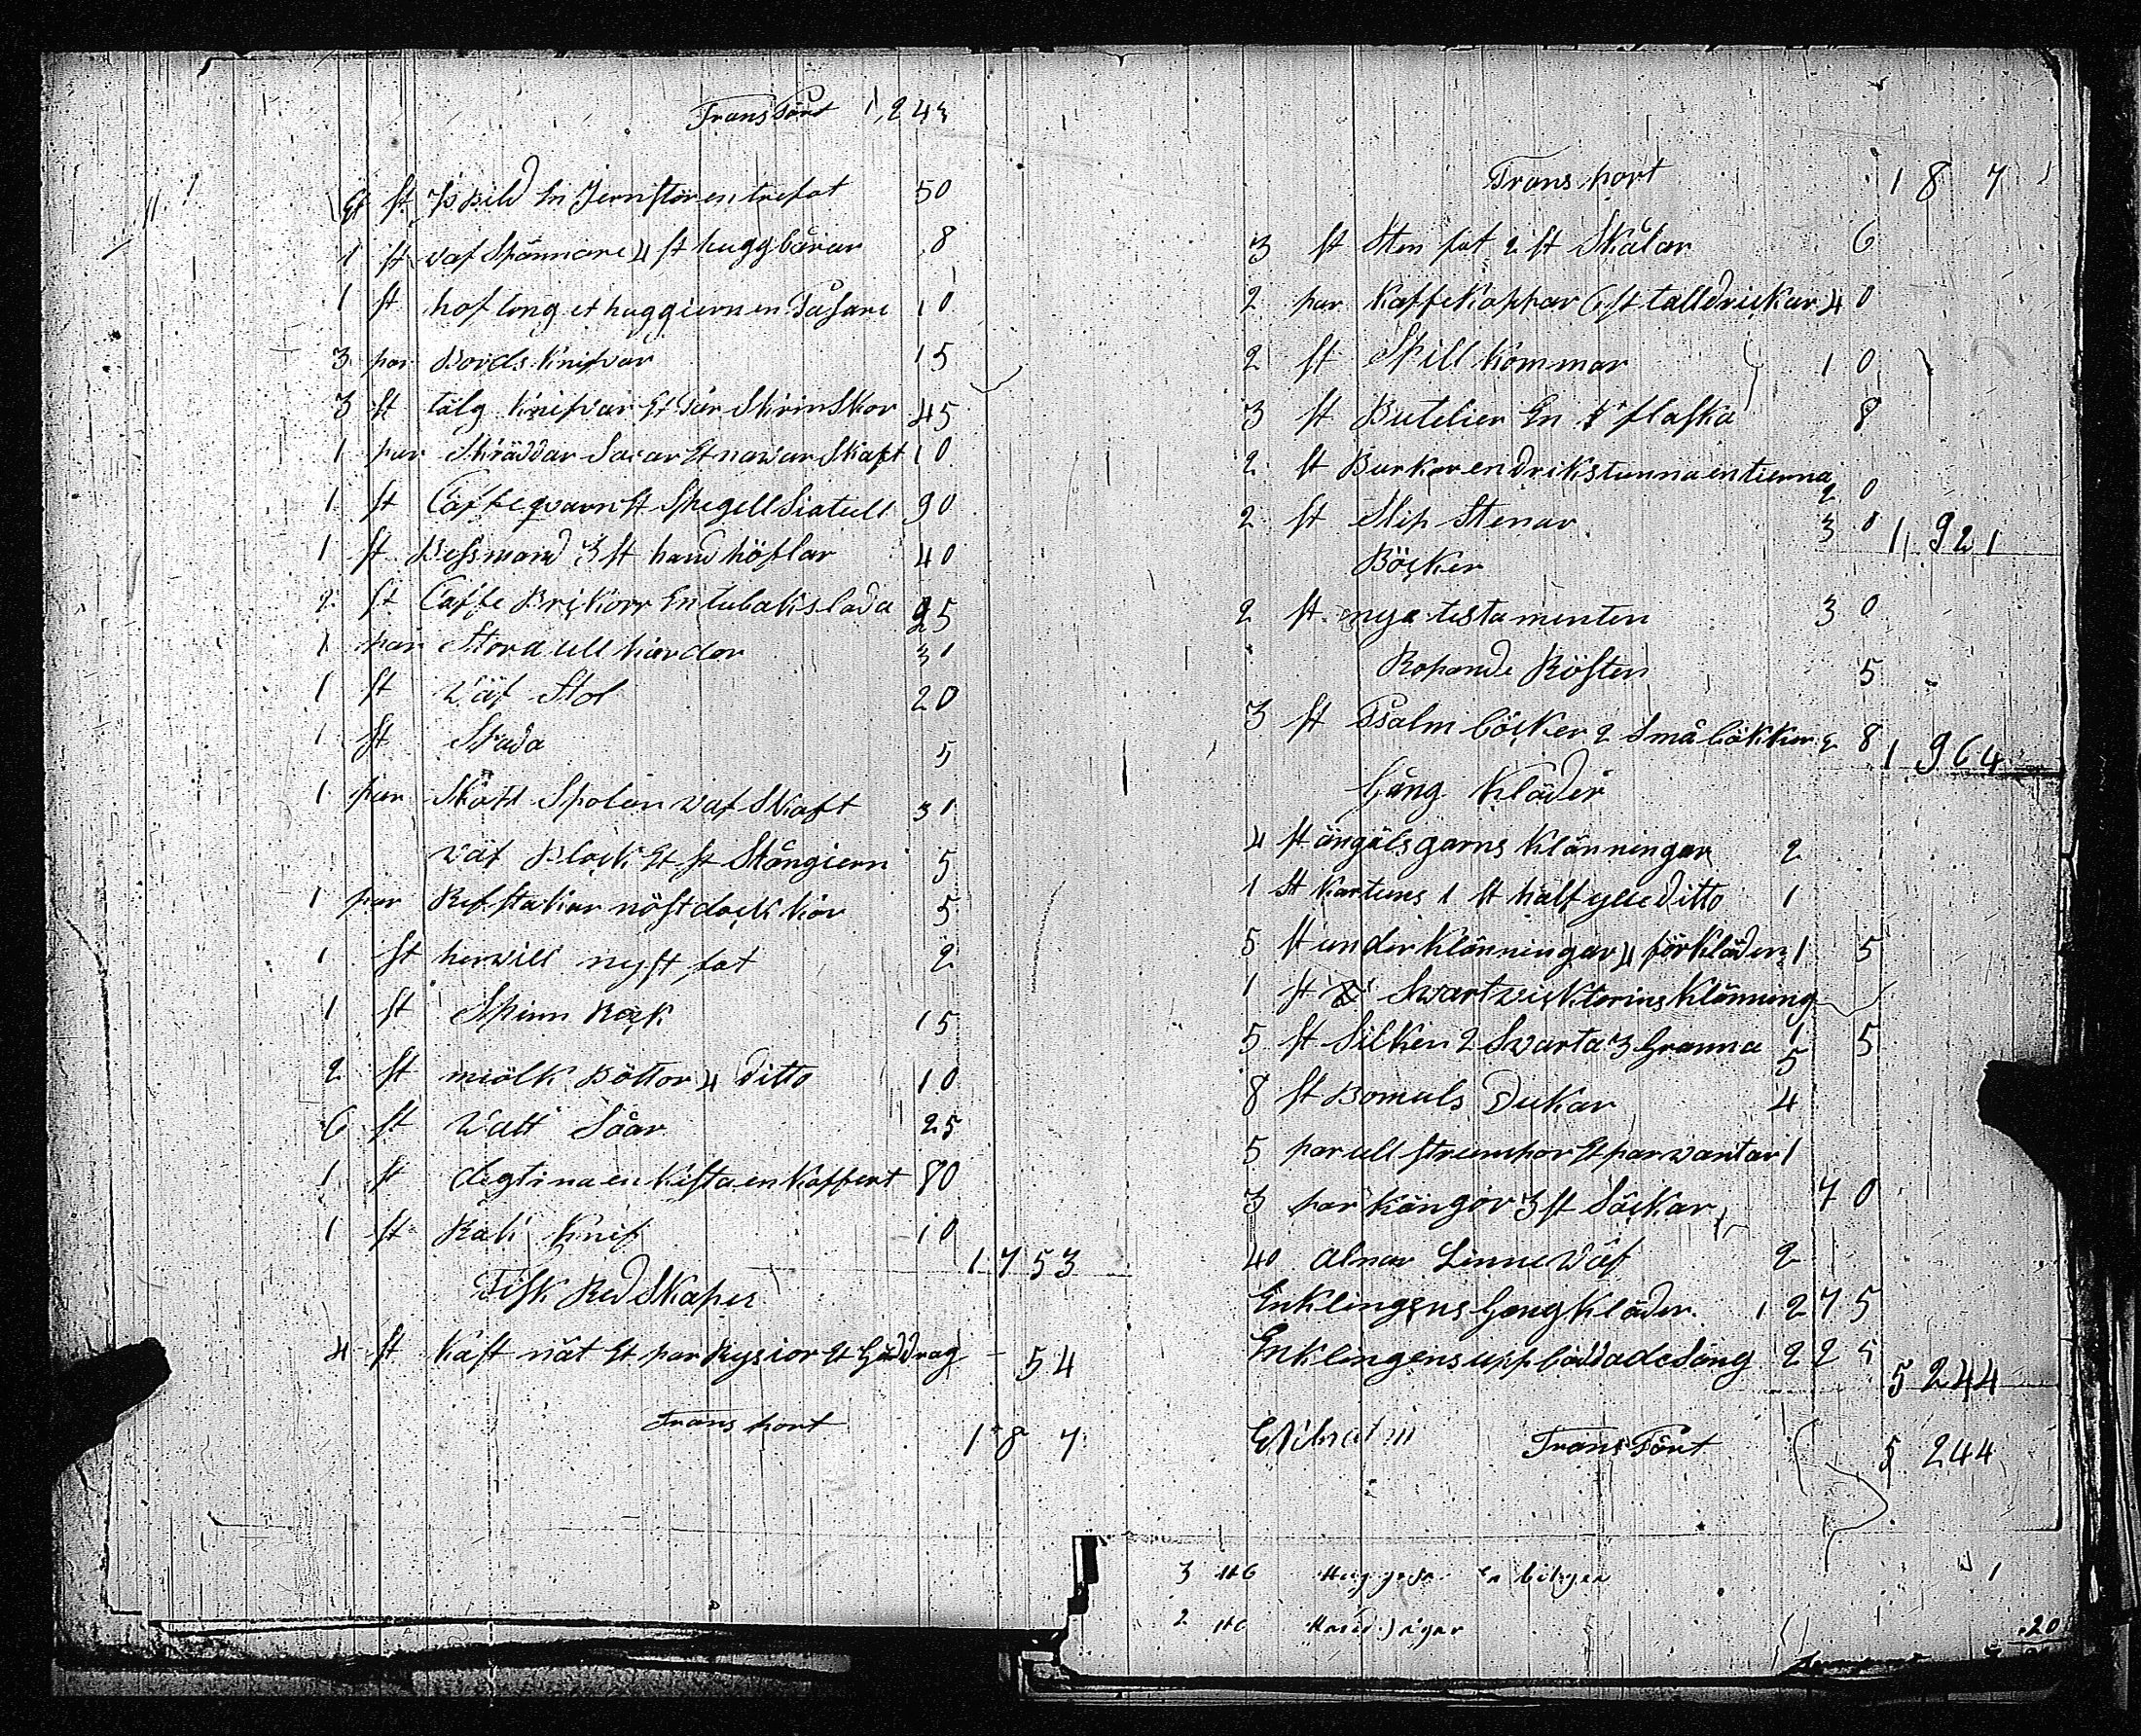 Transport 1,243
Et st is Bild En Jernstör en trefot 50
1 st vaf Spännare 4 st huggbärar 8
1 st hof tong et huggiern en Pasare 10
3 par Bords Knifvar 15
3 st tälg Knifvar Et Par SkrinSkor 45
1 par Skräddar Saxar Et navar Skaft 10
1 st Caffeqvarn st Spegell Siatull 90
1 st Bessmand 3 st hand höflar 40
2 st Caffe Brickorr En tubakslada 25
1 par Stora ull kardor 31
1 st Väf Stol 20
1 st Skada 5
1 par Skott Spolar vaf Skaft 31
Väf Block Et st Stångiern 5
1 par Ref stakar nöst dock kor 5
1 st hervill nyst fot 2
1 st Spinn Rock 15
2 st miölk Böttor 4 Ditto 10
6 st Watt Såar 25
1 st degtina en Kista en Koffert 80
1 st Rak Knif 10
1 753
Fisk RedSkaper
4 st Kast nät Et par Rysior Et Gäddrag 54
Transport 1 8 7
Transport 1 8 7
3 st Sten fat 2 st Skålar 6
2 par KaffeKoppar 6 st talldrickar 40
2 st Spill Kommar 10
3 st Butelier En flaska 8
2 st Burkar en drikstunna en tierna 20
2 st Slip Stenar 30 1 921
Böcker
2 st nya testamenten 30
Ropande Rösten 5
3 st Psalm böcker 2 Små bökker 8 1 964
Gång Kläder
4 st ängälsgarns Klänningar 2
1 st Kartuns 1 st half ylle Ditto 1
5 st under Klänningar 4 förKläden 1 5
1 st Svart vicktorins Klänning
1 5
5 st Silken 2 Svarta 3 Granna 5
8 st Bomuls Dukar 4
5 par ull strumpor Et par vantar 1
3 par Kängor 3 st Säckar 70
40 alnar Linne Väf 2
Enklingens Gang Kläder 1 275
Enklingens uppbäddade Säng 225 5 244
Transport 5 244
3 1
2 20